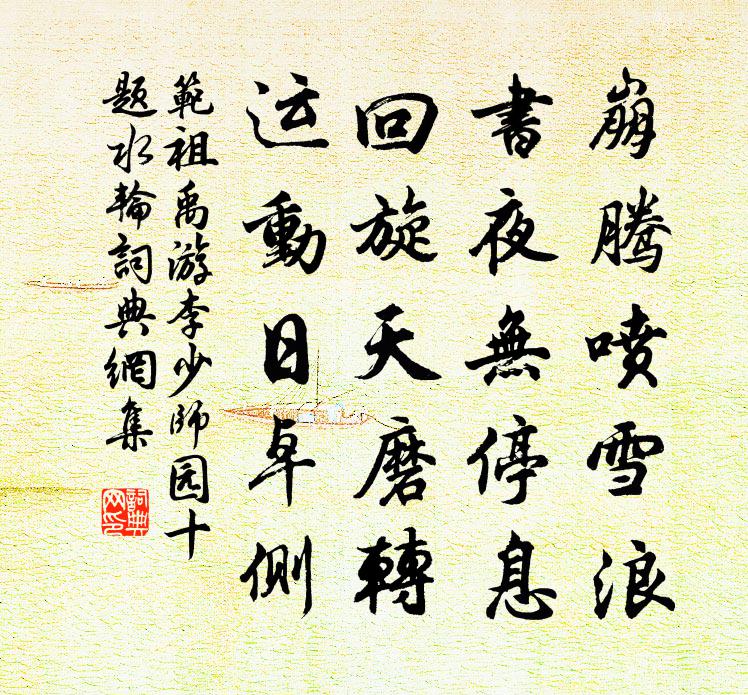 崩腾喷雪浪
書夜無停息
回旋天磨轉
运動日卓側
範祖禹游李少師园十
题水輪詞典網集
詞典网印